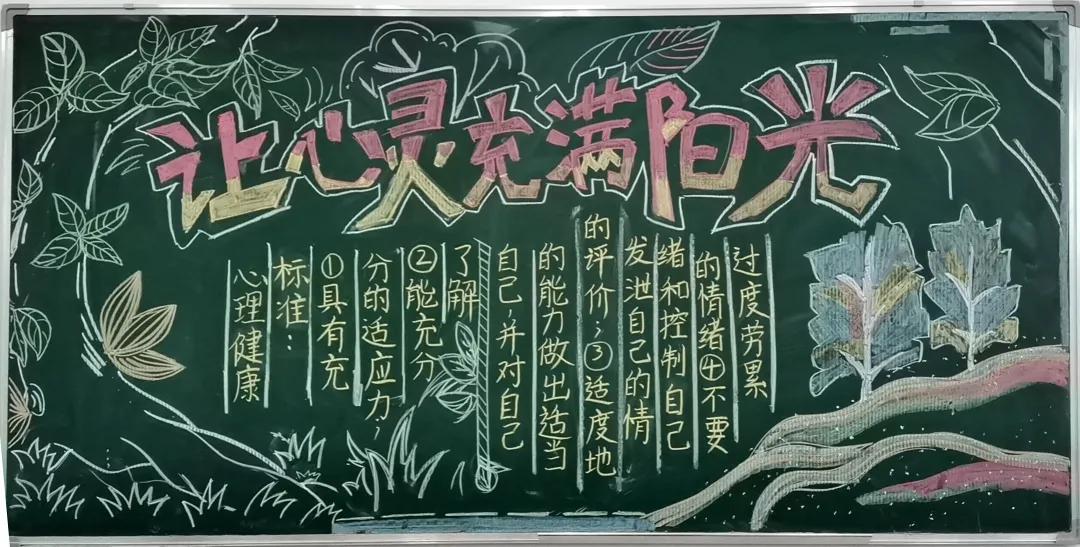 让心灵充满阳光
心理健康
标准：
①具有充
分的适应力；
②能充分
了解
自己，并对自己
的能力做出适当
的评价；③适度地
发泄自己的情
绪和控制自己
的情绪④不要
过度劳累